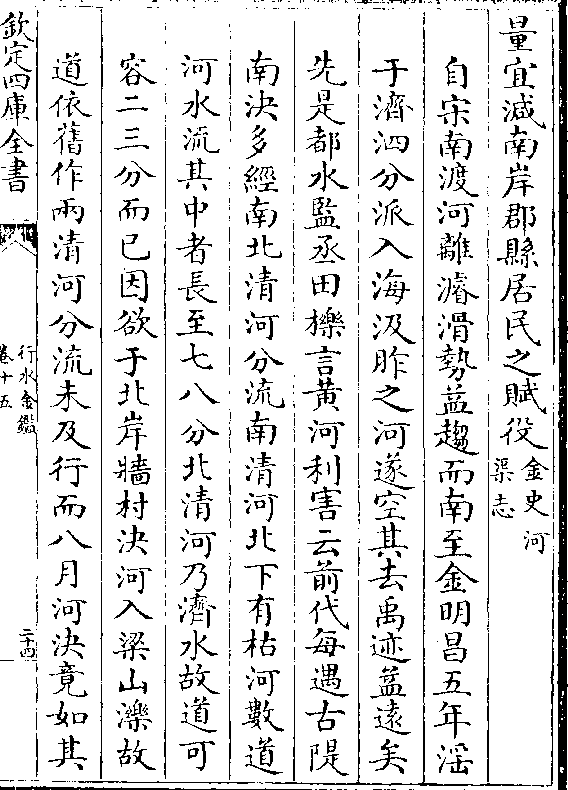 量宜減南岸郡縣居民之賦役金史河渠志
自宋南渡河離濬滑勢益趨而南至金明昌五年滛
于濟泗分派入海汲胙之河遂空其去禹迹益遠矣
先是都水監丞田櫟言黄河利害云前代每遇古隄
南決多經南北清河分流南清河北下有枯河數道
河水流其中者長至七八分北清河乃濟水故道可
容二三分而已因欲于北岸牆村決河入梁山濼故
道依舊作兩清河分流未及行而八月河決竟如其
欽定四庫全書
行水金鑑
卷十五
二十四